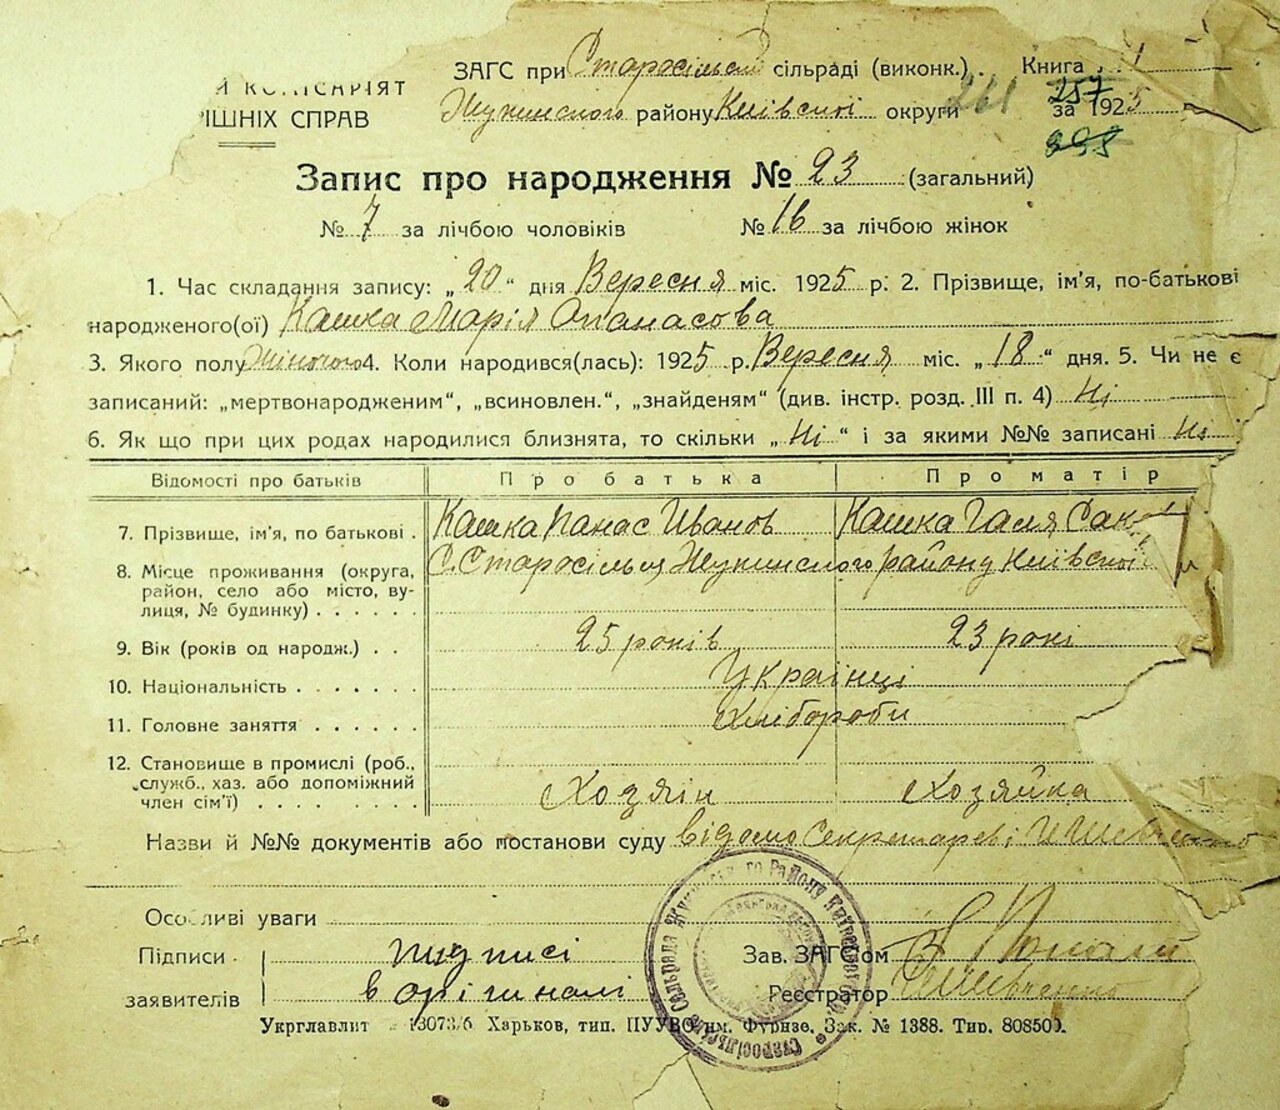 ЗАГС при Старосільскій сільраді (виконк.) Книга 1
КОМІСАРІЯТ
Жукинского району Київскої округи 261 257 за 1925
РІШНІХ СПРАВ
Запис про народження № 23 (загальний)
№ 7 за лічбою чоловіків № 16 за лічбою жінок
1. Час складання запису: „20" дня Вересня міс. 1925 р. 2. Прізвище, ім'я, по-батькові
народженого(ої) Кашка Марія Опанасова
3. Якого полу жіночого 4. Коли народився(лась): 1925 р. Вересня міс. „18" дня. 5. Чи не є
записаний: „мертвонародженим", „всиновлен.", „знайденям" (див. інстр. розд. III п. 4) Ні
6. Як що при цих родах народилися близнята, то скільки „Ні" і за якими №№ записані Ні
Відомості про батьків Про батька Про матір
7. Прізвище, ім'я, по батькові . Кашка Панас Иванов Кашка Галя
8. Місце проживання (округа, С. Старосільц Жукинского району Київскої
район, село або місто, ву-
лиця, № будинку) . . . . . .
9. Вік (років од народж.) . . 25 років 23 рокі
10. Національність . . . . . . . Українці
11. Головне заняття . . . . . . Хлібороби
12. Становище в промислі (роб.,
служб., хаз. або допоміжний
член сім'ї) . . . . . . . . . Хозяін Хозяйка
Назви й №№ документів або постанови суду відомо Секретареві И Шевченко
Особливі уваги
Підписи підписі Зав. ЗАГС'ом
заявителів в орігиналі Реєстратор И Шевченко
Старосільська Сільрада Жукинського Району Київської
Укрглавліт 13073/6 Харьков, тип. ПУУВО им. Фрунзе, Зак. № 1388. Тир. 808500.